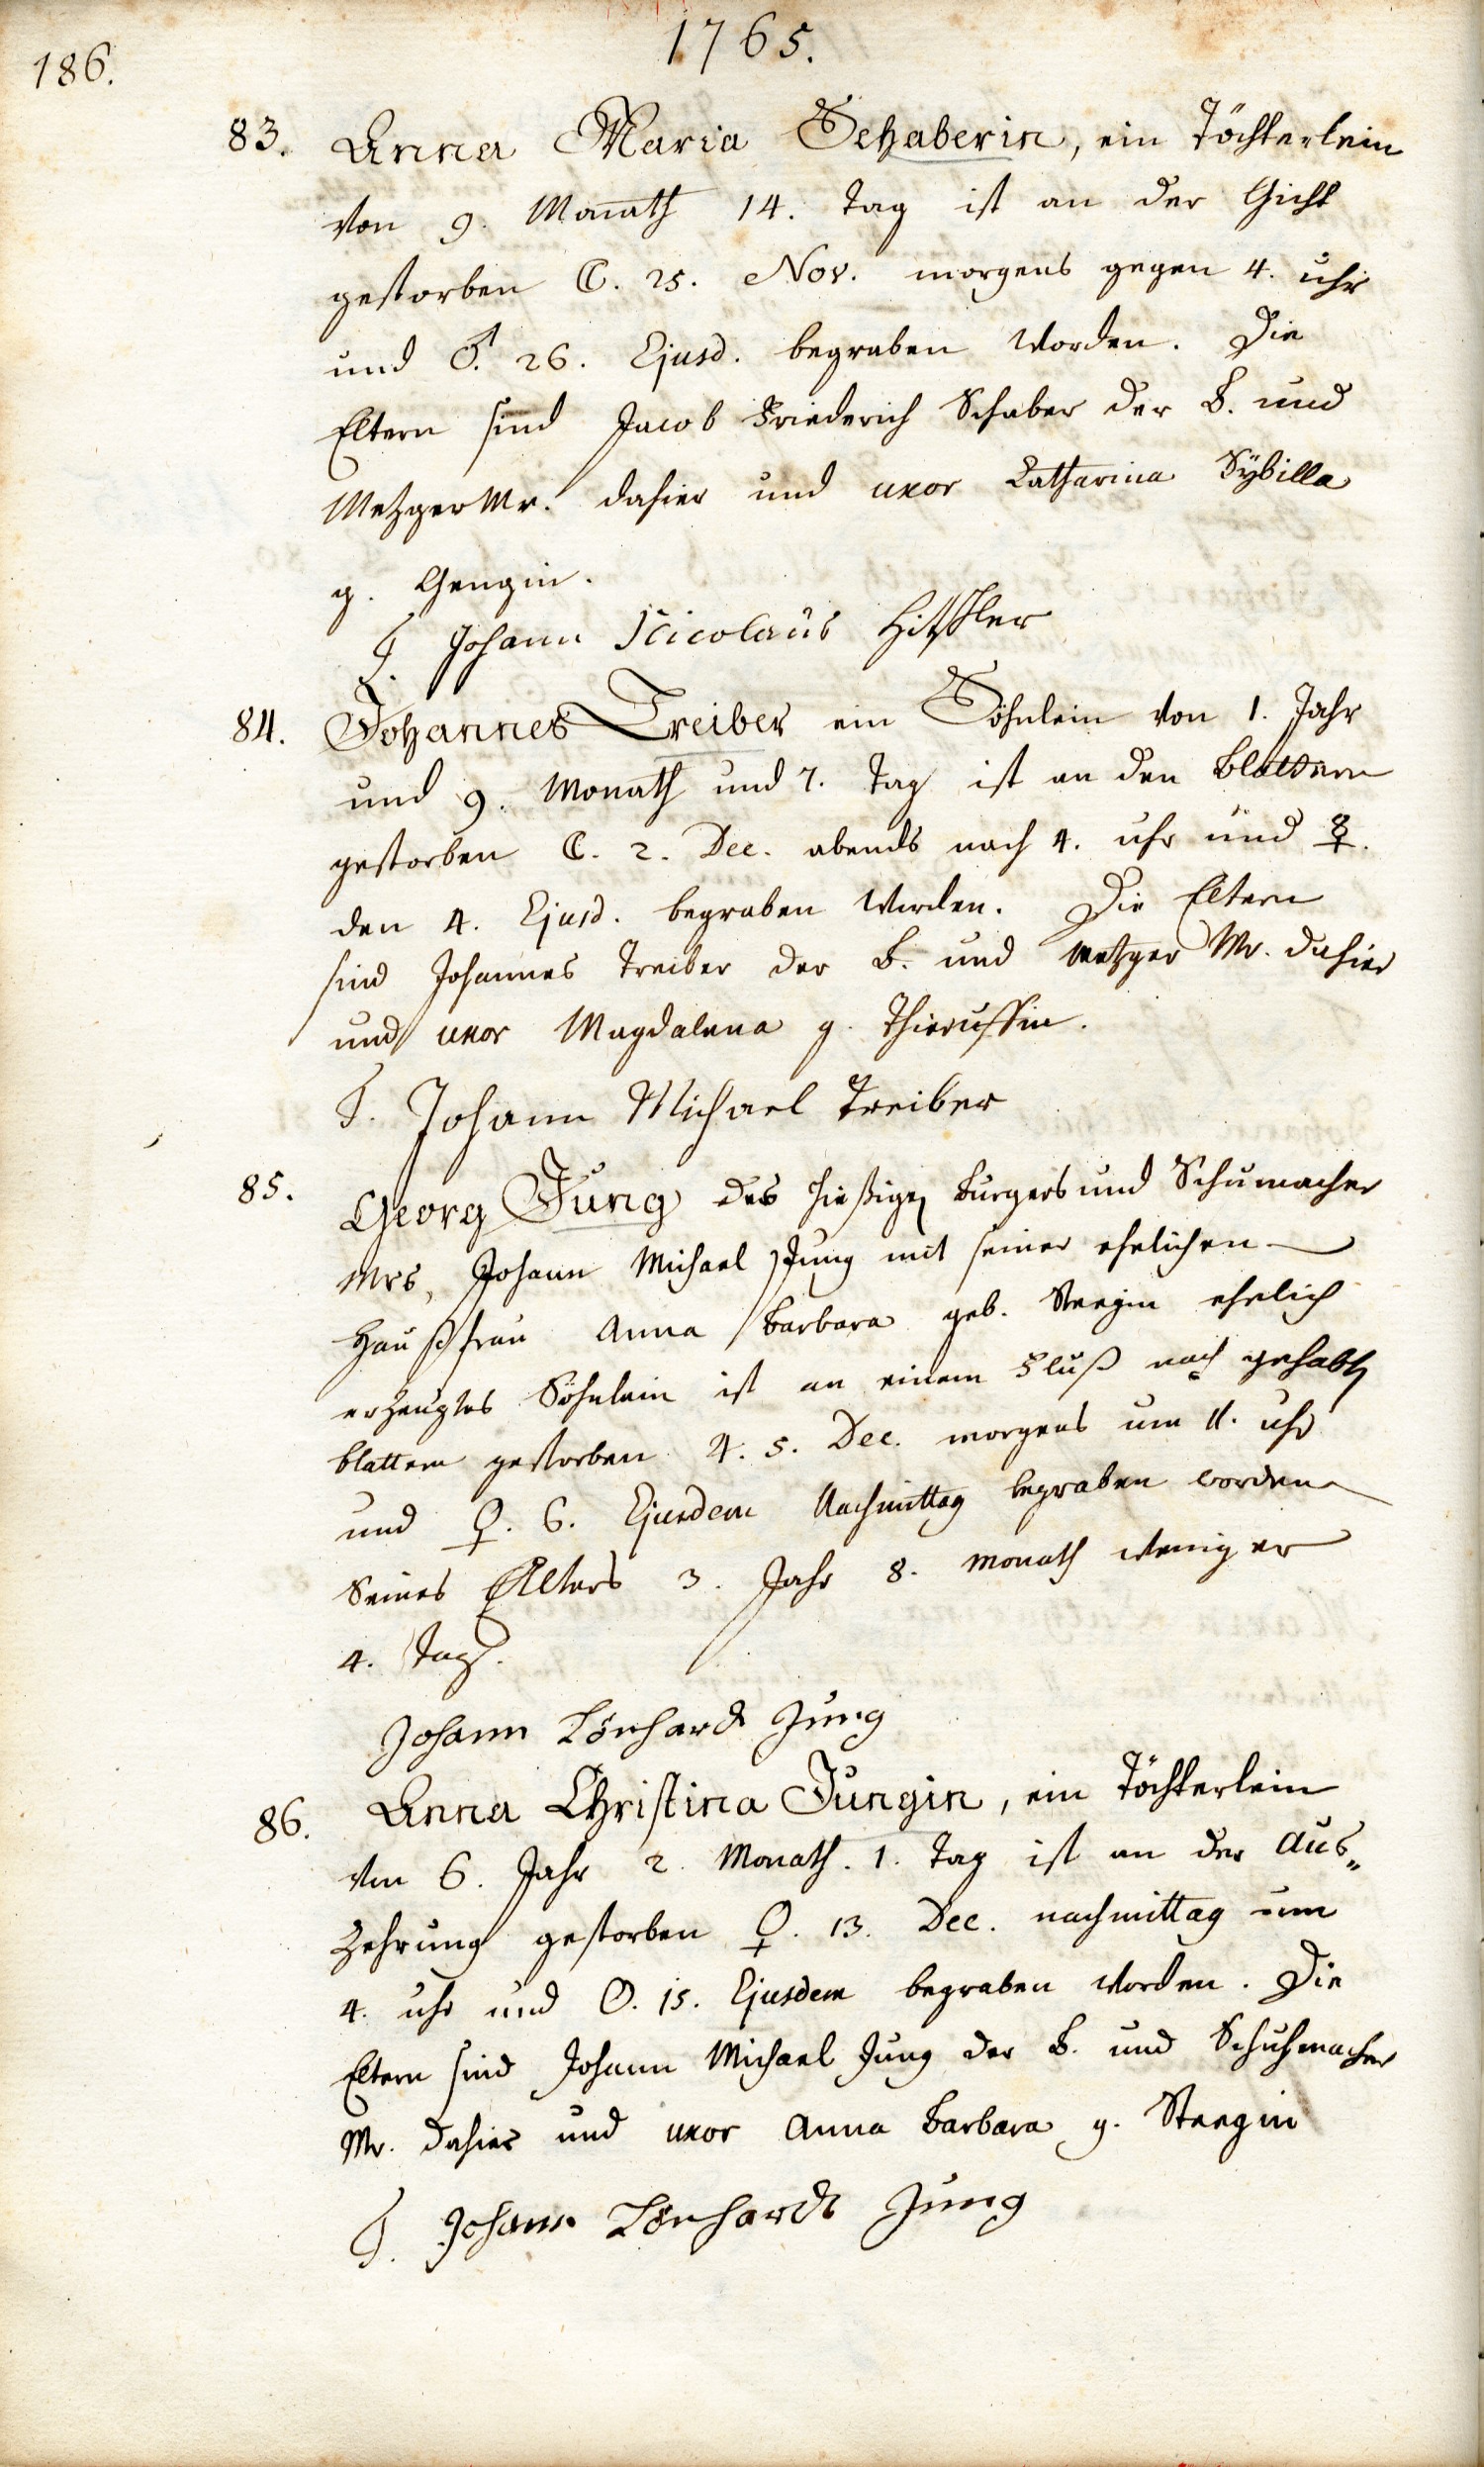 186.
1765.
83. Anna Maria Schaberin, ein Töchterlein
von 9. Monath 14. Tag ist an der Gicht
gestorben ☾. 25. Nov. morgens gegen 4. uhr
und ♂. 26. Ejusd. begraben worden. Die
Eltern sind Jacob Friederich Schaber der B. und
Metzger Mr. dahier und uxor Catharina Sÿbilla
g. Gengin.
T. Johann Nicolaus
84. Johannes Treiber ein Söhnlein von 1. Jahr
und 9. Monath und 7. Tag ist an den Blattern
gestorben ☾. 2. Dec. abends nach 4. uhr und ☿.
den 4. Ejusd. begraben worden. Die Eltern
sind Johannes Treiber der B. und Metzger Mr. dahier
und uxor Magdalena g.
T. Johann Michael Treiber
85. Georg Jung des hießigen Burgers und Schumacher
Mrs, Johann Michael Jung mit seiner ehelichen
Haußfrau Anna Barbara geb. Steegin ehelich
erzeugtes Söhnlein ist an einem Fluß nach gehabten
blattern gestorben ♃. 5. Dec. morgens um 11. uhr
und ♀. 6. Ejusdem Nachmittag begraben worden
Seines Alters 3. Jahr 8. Monath weniger
4. Tag.
Johann Lönhard Jung
86. Anna Christina Jungin, ein Töchterlein
von 6. Jahr 2. Monath. 1. Tag ist an der Aus„
Zehrung gestorben ♀. 13. Dec. nachmittag um
4. uhr und ☉. 15. Ejusdem begraben worden. Die
Eltern sind Johann Michael Jung der B. und Schuhmacher
Mr. dahier und uxor Anna Barbara g. Steegin
T. Johann Lönhardt Jung